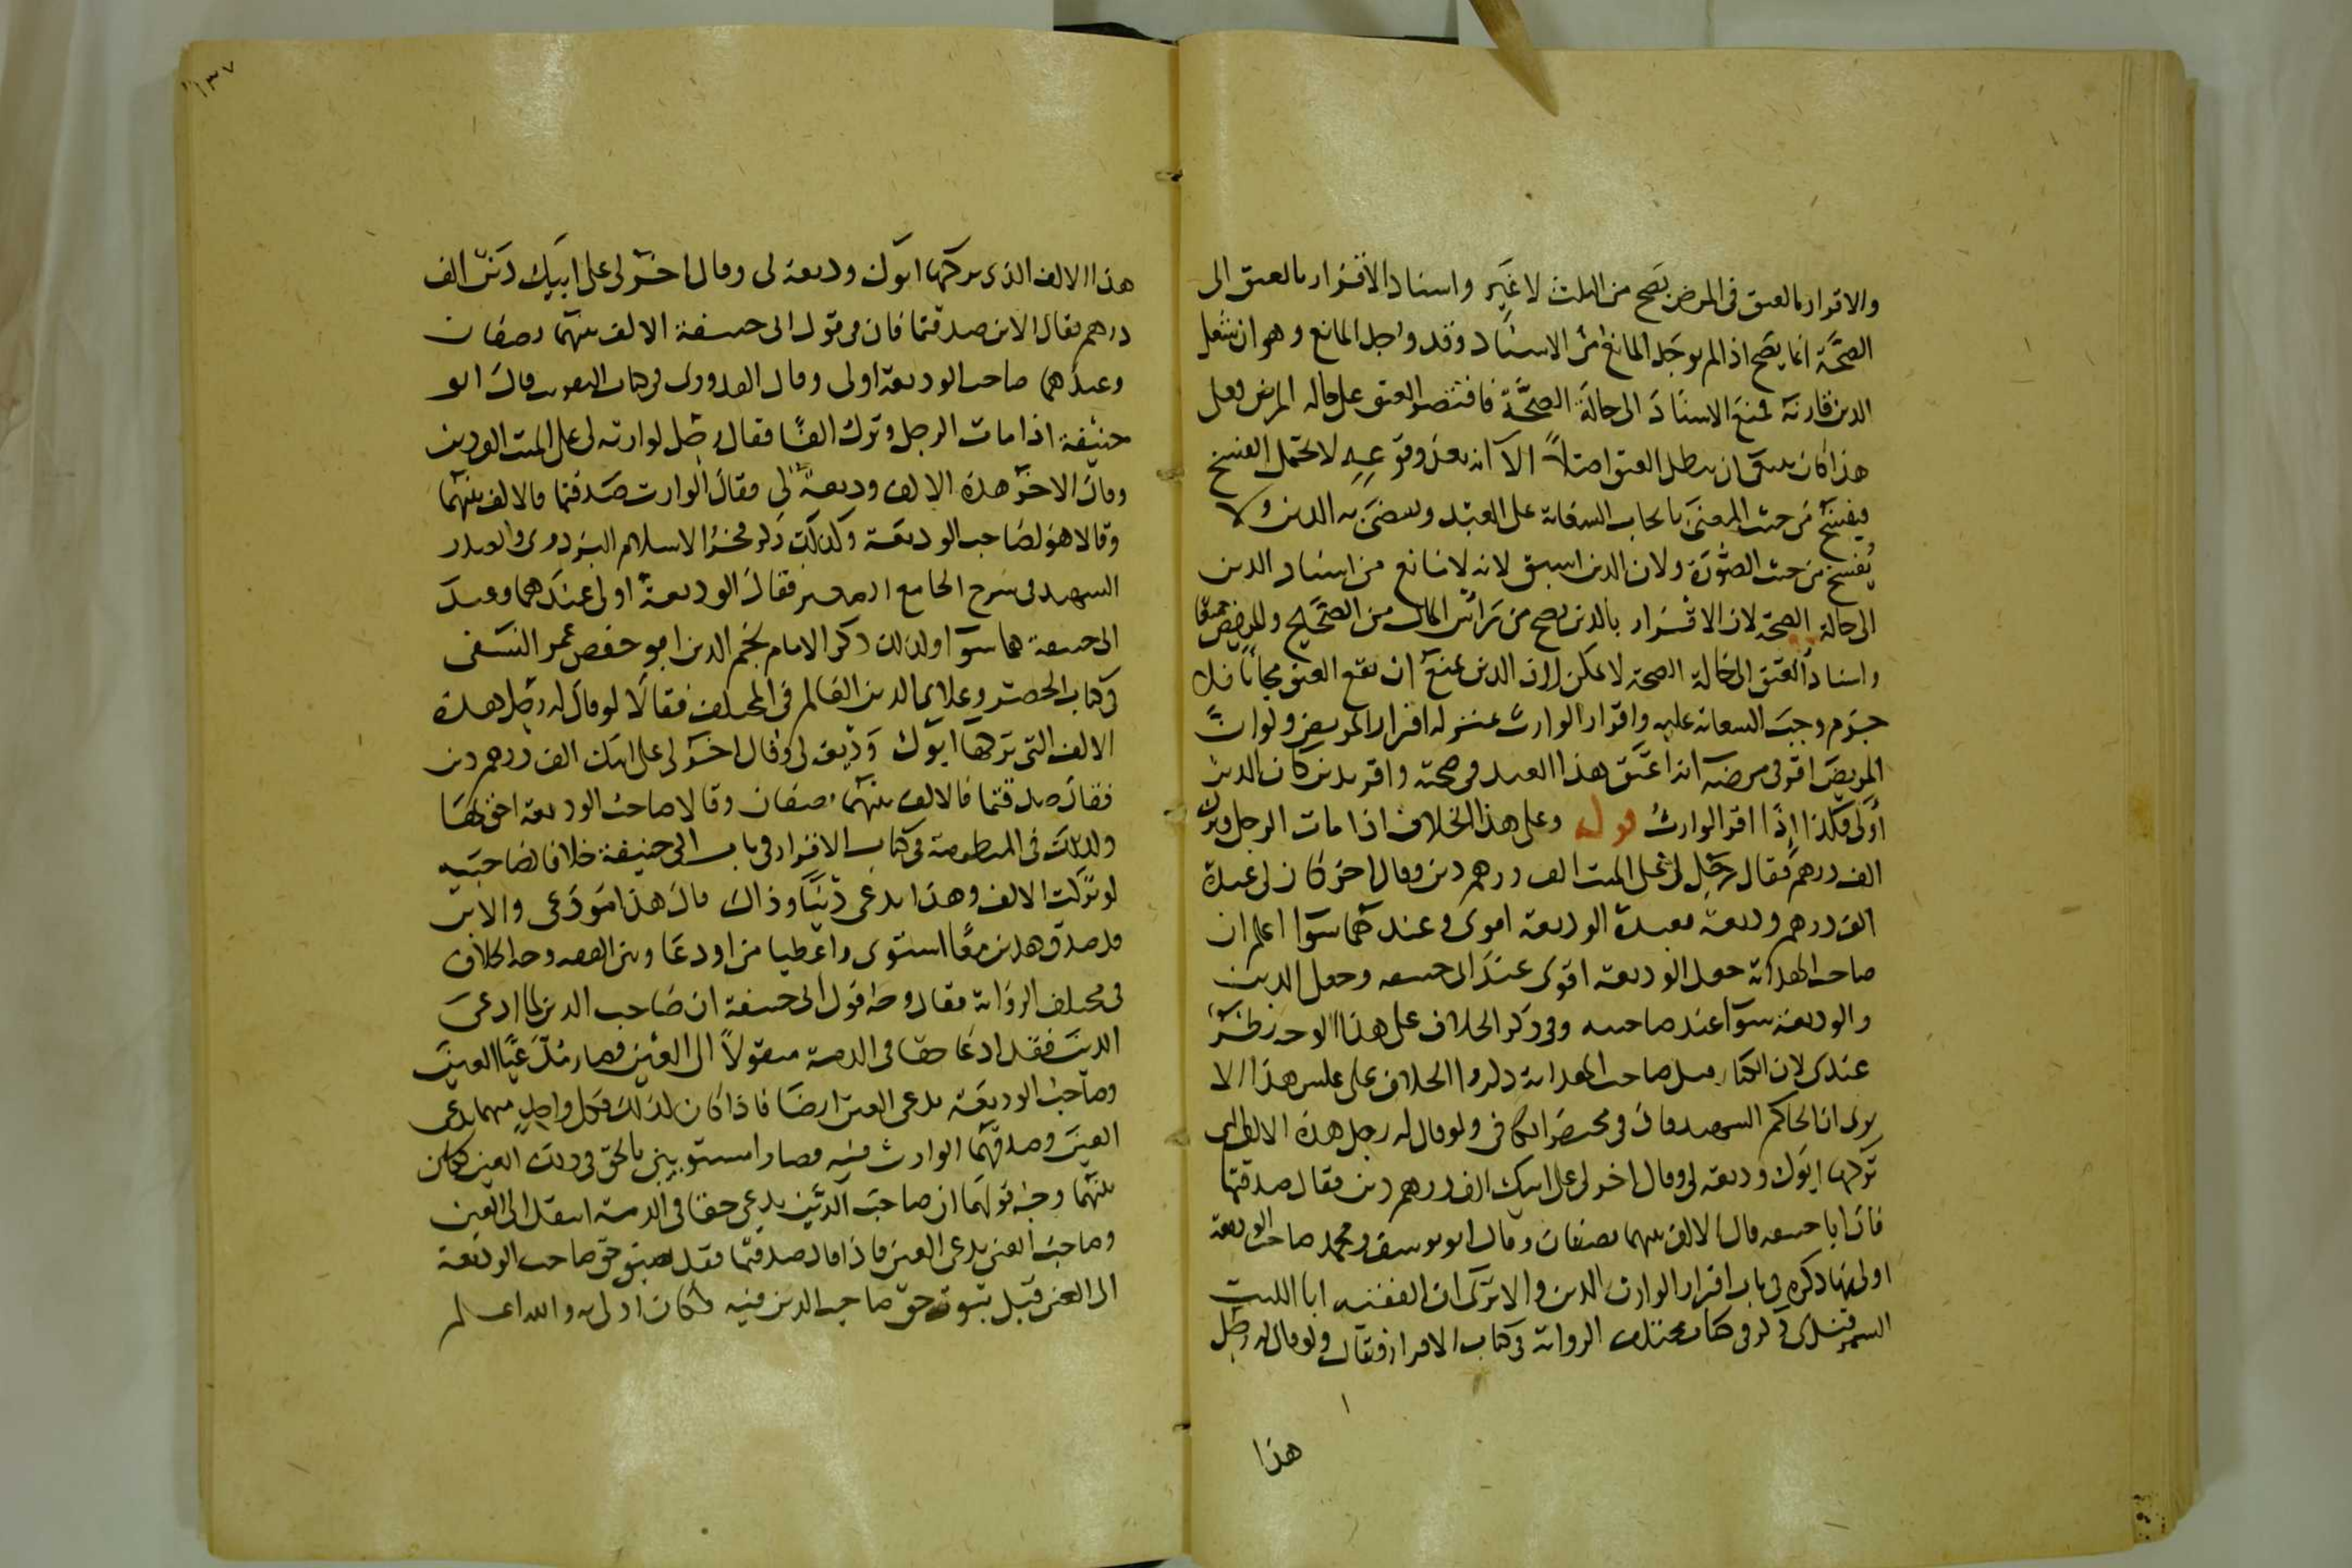 والاقرار بالعتق فى المرض يصح من الثلث لا غير واسناد الاقرار بالعتق الى
الصحة انما يصح اذا لم يوجد المانع من الاسناد وقد وجد المانع وهو ان شغل
الدين قارنه فمنع الاسناد الى حالة الصحة فاقتصر العتق على حالة المرض فعلى
هذا كان ينبغى ان يبطل العتق اصلا الا انه بعد وقوعه لا يحتمل الفسخ
فيفسخ من حيث المعنى بايجاب السعاية على العبد ويقضى به الدين ولا
يفسخ من حيث الصورة ولان الدين اسبق لانه لا مانع من اسناد الدين
الى حالة الصحة لان الاقرار بالدين يصح من رأس المال من الصحيح والمريض جميعا
واسناد العتق الى حالة الصحة لا يمكن لان الدين يمنع ان يقع العتق مجانا فلا
جرم وجبت السعاية عليه واقرار الوارث بمنزلة اقرار المريض ولو ان
المريض اقر فى مرضه انه اعتق هذا العبد فى صحته واقر بدين كان الدين
أولى فكذا اذا اقر الوارث قوله وعلى هذا الخلاف اذا مات الرجل وترك
الف درهم فقال رجل لى على الميت الف درهم دين وقال اخر كان لى عنده
الف درهم وديعة فعنده الوديعة اقوى وعندهما سوآ اعلم ان
صاحب الهداية جعل الوديعة اقوى عند ابى حنيفه وجعل الدين
والوديعة سوآ عند صاحبيه وفى ذكر الخلاف على هذا الوجه نظر
عندى لان الكبار قبل صاحب الهداية ذكروا الخلاف على عكس هذا الا
يرى ان الحاكم الشهيد قال فى مختصر الكافى ولو قال له رجل هذه الالف التى
تركها ابوك وديعة لى وقال اخر لى على ابيك الف درهم دين فقال صدقتما
فان ابا حنيفه قال الالف بينهما نصفان وقال ابو يوسف ومحمد صاحب الوديعة
اولى بها ذكره فى باب اقرار الوارث بالدين والا ترى ان الفقيه ابا الليث
السمرقندى ذكر فى كتاب مختلف الرواية فى كتاب الاقرار فقال ولو قال له رجل
هذا
١٣٧
هذا الالف الذى تركها ابوك وديعة لى وقال اخر لى على ابيك دين الف
درهم فقال الابن صدقتما فان فى قول ابى حنيفة الالف بينهما نصفان
وعندهما صاحب الوديعة اولى وقال القدورى فى كتاب التقريب قال ابو
حنيفة اذا مات الرجل وترك الفا فقال رجل لوارثه لى على الميت الف دين
وقال الاخر هذه الالف وديعة لى فقال الوارث صدقتما فالالف بينهما
وقالا هو لصاحب الوديعة وكذلك ذكر فخر الاسلام البزدوى والصدر
الشهيد فى شرح الجامع الصغير فقال الوديعة اولى عندهما وعند
ابى حنيفة هما سوآ وكذلك ذكر الامام نجم الدين ابو حفص عمر النسفى
فى كتاب الحصر وعلاء الدين العالم فى المختلف فقالا لو قال له رجل هذه
الالف التى تركها ابوك وديعة لى وقال اخر لى على ابيك الف درهم دين
فقال صدقتما فالالف بينهما نصفان وقالا صاحب الوديعة احق بها
وكذلك فى المنظومة فى كتاب الاقرار فى باب ابى حنيفة خلافا لصاحبيه
لو تركت الالف وهذا يدعى دينا وذاك قال هذا مودعى والابن
قد صدق هذين معا استوى واعطيا من اودعا وبين الفقيه وجه الخلاف
فى مختلف الرواية فقال وجه قول ابى حنيفة ان صاحب الدين لما ادعى
الدين فقد ادعا حقا فى الذمة منقولا الى العين فصار مدعيا العين
وصاحب الوديعة يدعى العين ايضا فاذا كان كذلك فكل واحد منهما يدعى
العين وصدقهما الوارث فيه فصارا مستويين بالحق فى ذلك العين فكان
بينهما وجه قولهما ان صاحب الدين يدعى حقا فى الذمة انتقل الى العين
وصاحب العين يدعى العين فاذا قال صدقتما فقد سبق حق صاحب الوديعة
الى العين قبل ثبوت حق صاحب الدين فيه فكان اولى به والله اعلم